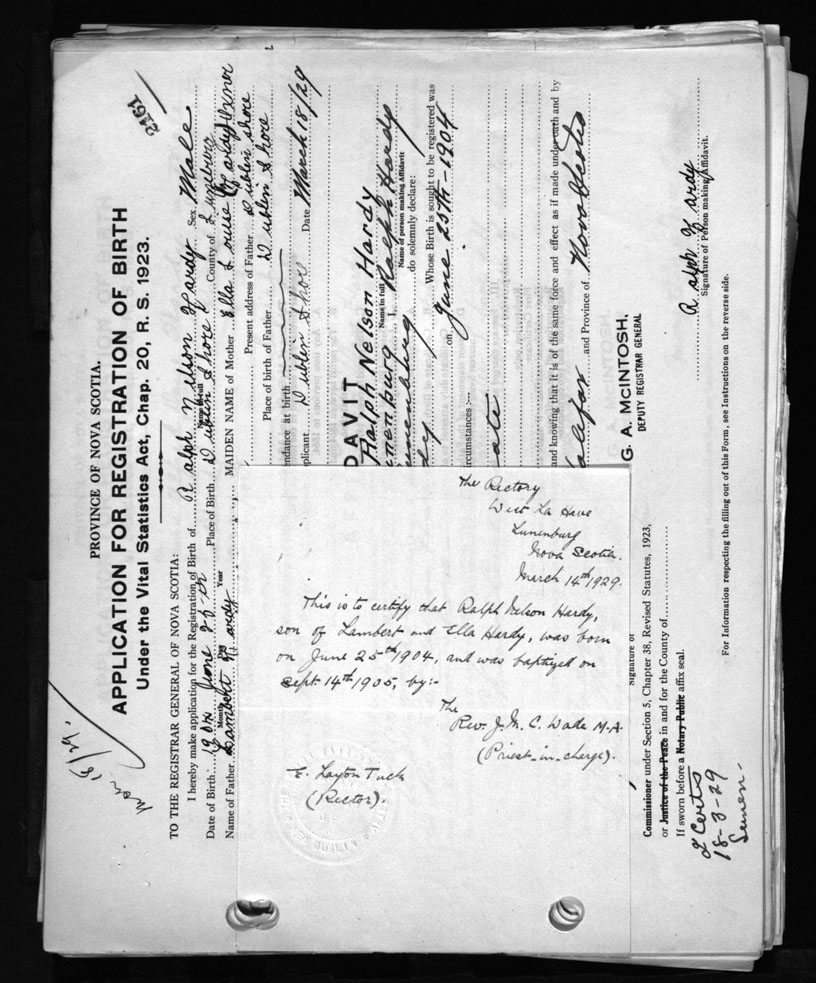 PROVINCE OF NOVA SCOTIA.
APPLICATION FOR REGISTRATION OF BIRTH
Under the Vital Statistics Act, Chap. 20, R. S. 1923.
2161
TO THE REGISTRAR GENERAL OF NOVA SCOTIA:
I hereby make application for the Registration of Birth of Ralph Nelson Hardy Sex Male
Name in full
Date of Birth: 1904 June 25 Place of Birth Dublin Shore County of Lunenburg
Month Day Year
Name of Father Lambert Hardy MAIDEN NAME of Mother Ella Louise
Present address of Father Dublin Shore
Place of birth of Father Dublin Shore
endance at birth
plicant Dublin Shore Date March 18/29
DAVIT
Ralph Nelson Hardy
Name in full
nenburg I, Ralph Hardy
Name of person making Affidavit
unenburg do solemnly declare:
dy Whose Birth is sought to be registered was
on June 25th-1904
rcumstances :—
ate
and knowing that it is of the same force and effect as if made under oath and by
alifax and Province of Nova Scotia
G. A. McINTOSH,
DEPUTY REGISTRAR GENERAL
Ralph Hardy
Signature of Person making Affidavit.
Signature of
Commissioner under Section 5, Chapter 38, Revised Statutes, 1923,
or Justice of the Peace in and for the County of
If sworn before a Notary Public affix seal.
2 Certs
18-3-29
For Information respecting the filling out of this Form, see Instructions on the reverse side.
The Rectory
West La Have
Lunenburg
Nova Scotia.
March 14th 1929.
This is to certify that Ralph Nelson Hardy,
son of Lambert and Ella Hardy, was born
on June 25th 1904, and was baptized on
Sept. 14th 1905, by:-
The
Rev. J. M. C. Wade M.A.
(Priest-in-charge).
E. Layton Tuck
(Rector).